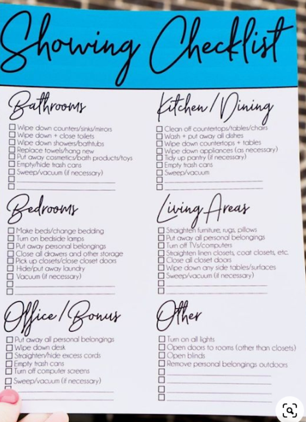 Showing Checklist
Bathrooms
Wipe down counters/sinks/mirrors
Wipe down + close toilets
Wipe down showers/bathtubs
Replace towels/hang new
Put away cosmetic/bath products/toys
Empty/hide trash cans
Sweep/vacuum (if necessary)
Kitchen/Dining
Clean off countertops/tables/chairs
Wash + put away all dishes
Wipe down countertops + tables
Wipe down appliances (as necessary)
Tidy up pantry (if necessary)
Empty trash cans
Sweep/vacuum
Bedrooms
Make beds/change bedding
Turn on bedside lamps
Put away personal belongings
Close all drawers and other storage
Pick up closets/close closet doors
Hide/put away laundry
Vacuum (if necessary)
Living Areas
Straighten furniture, rugs, pillows
Put away all personal belongings
Turn off TVs/computers
Straighten linen closets, coat closets, etc.
Close all closet doors
Wipe down any side tables/surfaces
Sweep/vacuum (if necessary)
Office/Bonus
Put away all personal belongings
Wipe down desk
Straighten/hide excess cords
Empty trash cans
Turn off computer screens
Sweep/vacuum (if necessary)
Other
Turn on all lights
Open doors to rooms (other than closets)
Open blinds
Remove personal belongings outdoors